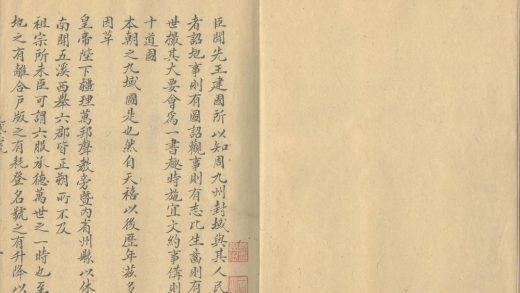 臣聞先王建國所以知周九州封域與其人民
者詔地事則有圖詔觀事則有志比生齒則有
世撮其大要會為一書趣時施宜文約事備則
十道圖
本朝之九域圖是也然自天禧以後歷年茲多
因革
皇帝陛下疆理萬邦聲教旁暨內省州縣以休
南開五溪西舉六郡皆正朔所不及
祖宗所未臣可謂六服承德萬世之一時也至
地之有離合戶版之有耗登名號之有升降以